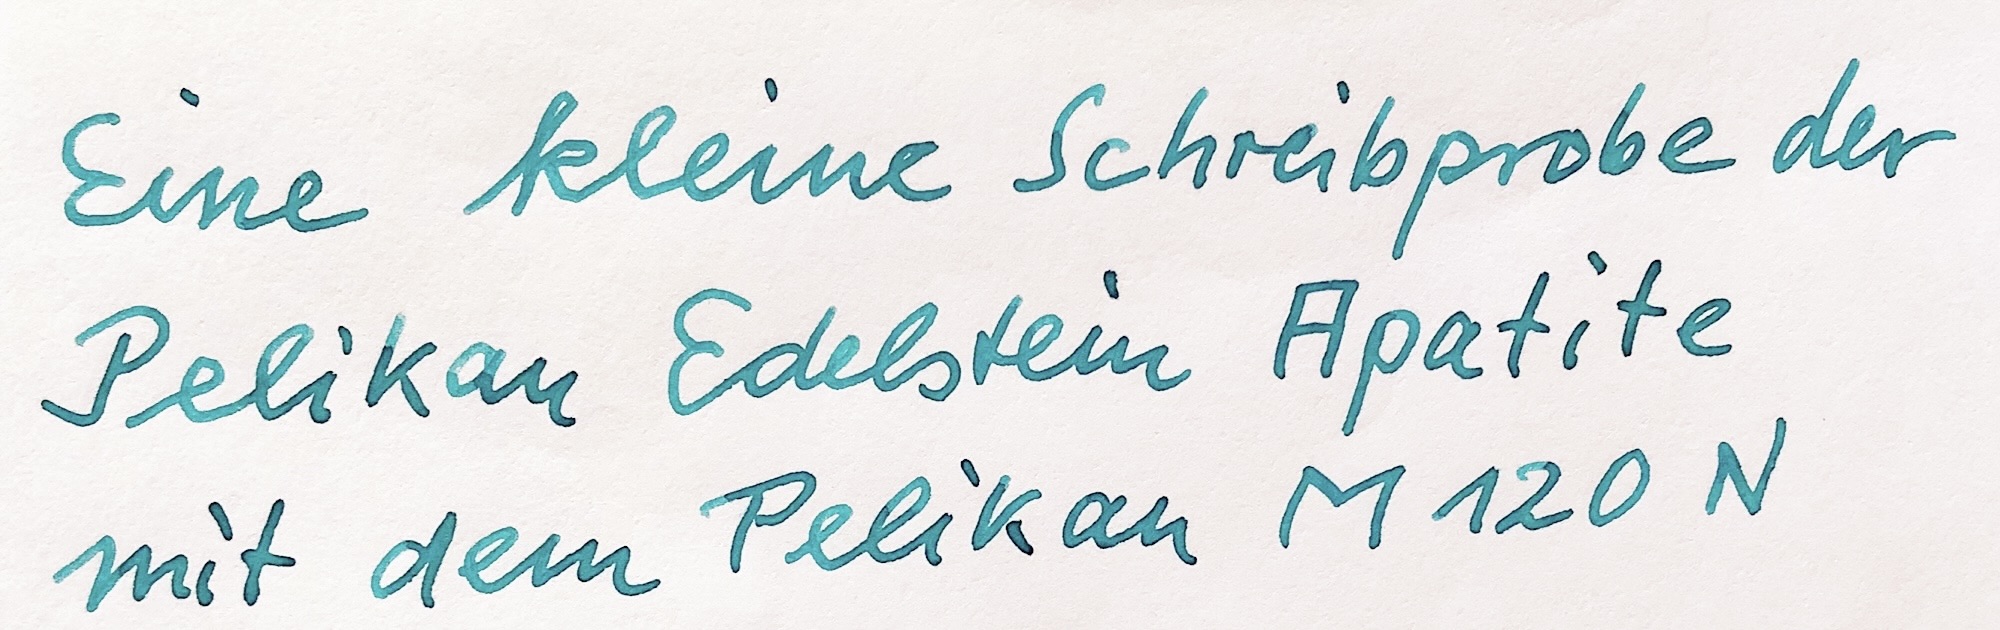 Eine kleine Schreibprobe der
Pelikan Edelstein Apatite
mit dem Pelikan M 120 N